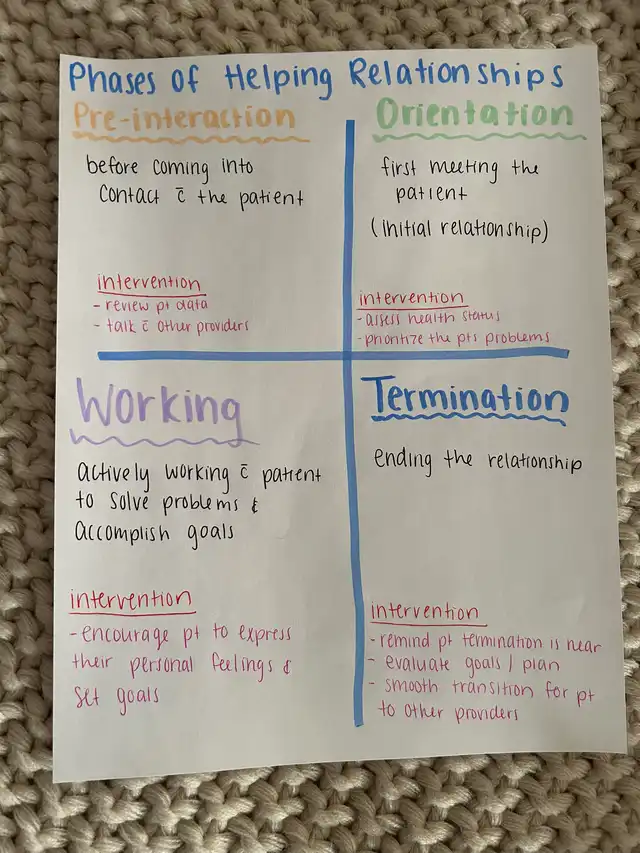 Phases of Helping Relationships
Pre-interaction
before coming into
contact c̄ the patient
intervention
- review pt data
- talk c̄ other providers
Orientation
first meeting the
patient
(initial relationship)
intervention
- assess health status
- prioritize the pts problems
Working
actively working c̄ patient
to solve problems &
accomplish goals
intervention
- encourage pt to express
their personal feelings &
set goals
Termination
ending the relationship
intervention
- remind pt termination is near
- evaluate goals / plan
- smooth transition for pt
to other providers